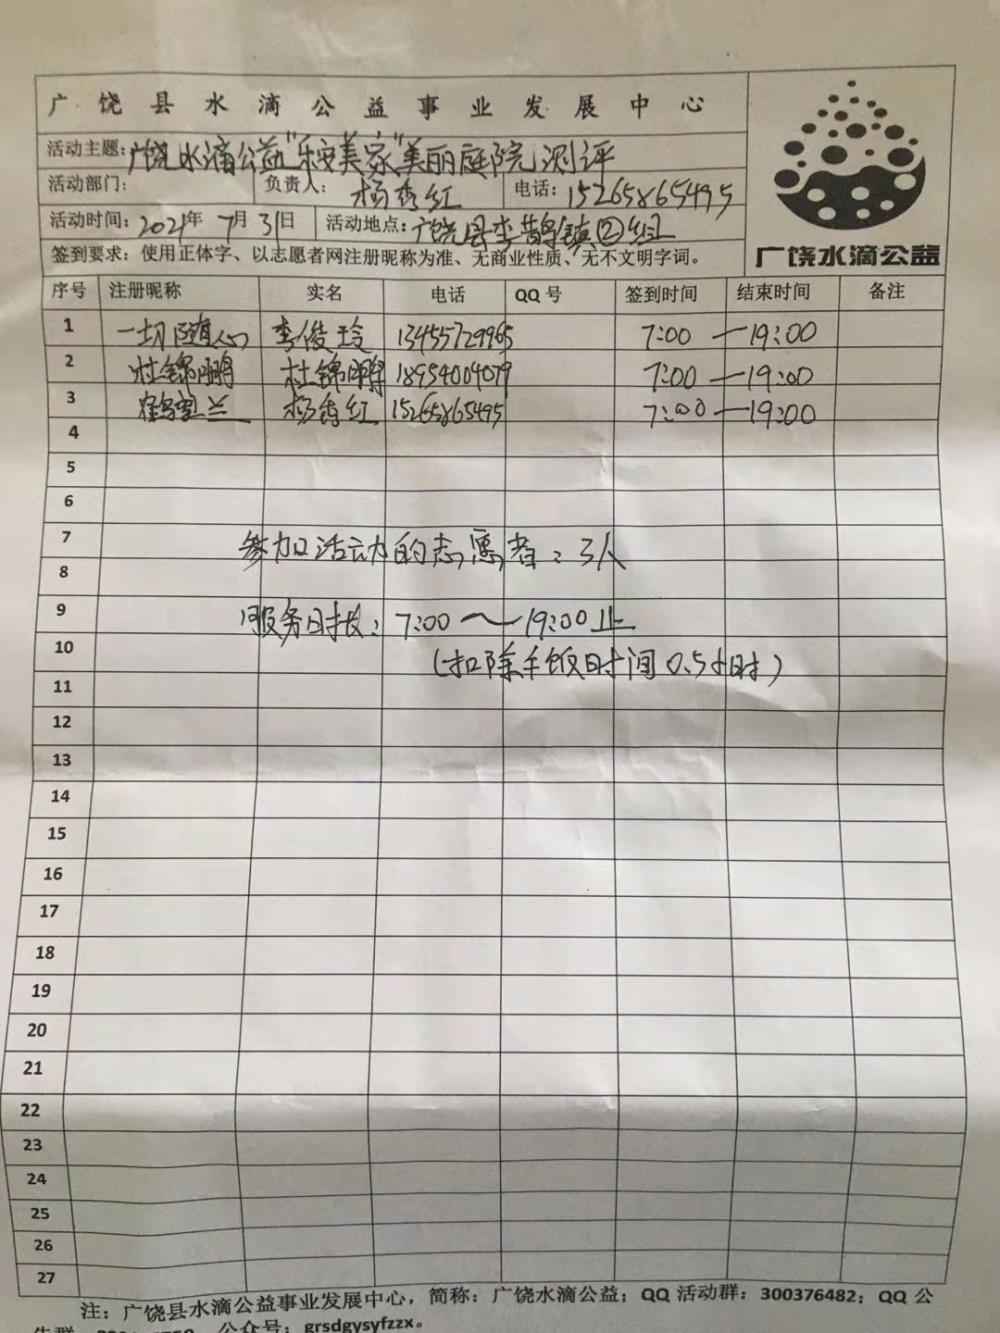 广饶县水滴公益事业发展中心
活动主题:广饶水滴公益"乐安美家"美丽庭院测评
活动部门: 负责人: 杨秀红 电话: 15265865495
活动时间: 2021年 7月 31日 活动地点: 广饶县李鹊镇②组
签到要求: 使用正体字、以志愿者网注册昵称为准、无商业性质、无不文明字词。
广饶水滴公益
序号 注册昵称 实名 电话 QQ号 签到时间 结束时间 备注
1 一切随心 李俊玲 13455729965 7:00 —19:00
2 杜锦鹏 杜锦鹏 18954004079 7:00 —19:00
3 兰 杨秀红 15265865495 7:00 —19:00
4
5
6
7 参加活动的志愿者: 3人
8
9 服务时长: 7:00 ~ 19:00止
10 (扣除午饭时间0.5小时)
11
12
13
14
15
16
17
18
19
20
21
22
23
24
25
26
27
注: 广饶县水滴公益事业发展中心, 简称: 广饶水滴公益; QQ活动群: 300376482; QQ公
公众号: grsdgysyfzzx。